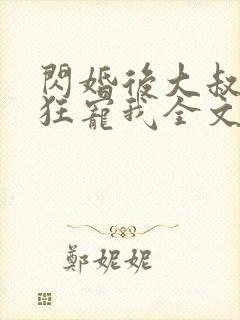 閃婚後大叔
狂寵我全文
鄭妮妮